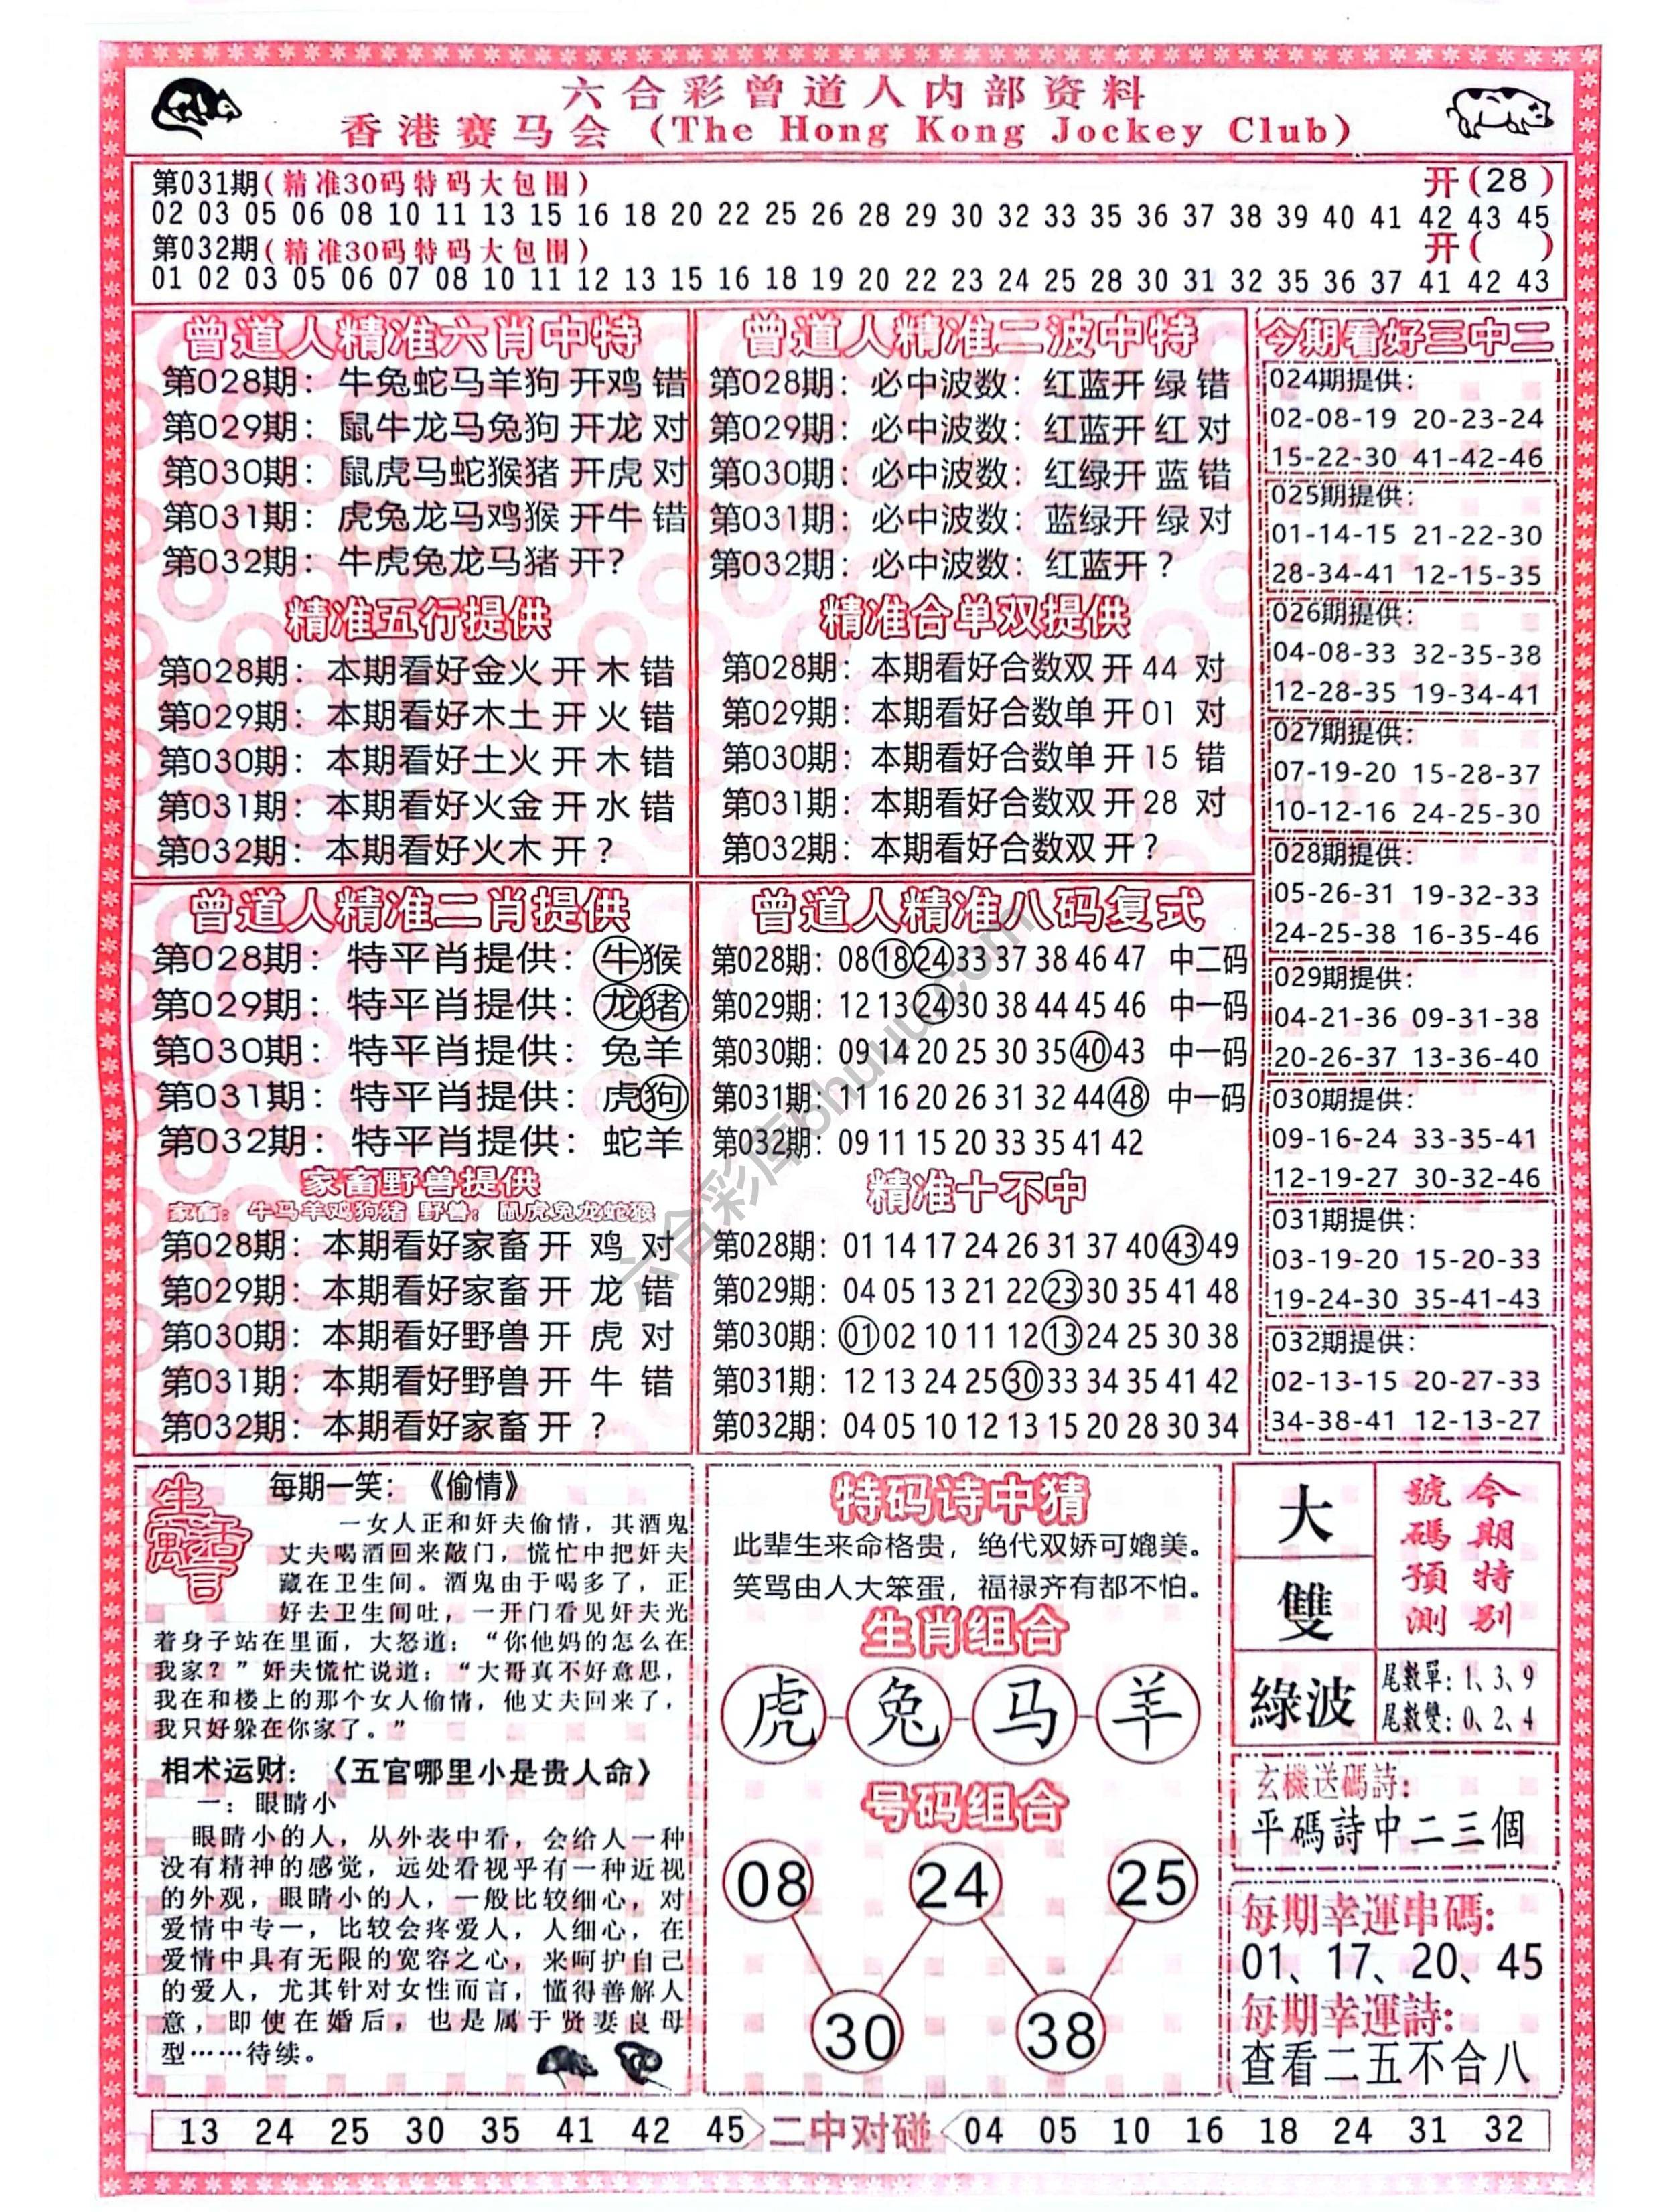 六合彩曾道人内部资料
香港赛马会 (The Hong Kong Jockey Club)
第031期(精准30码特码大包围) 开(28 )
02 03 05 06 08 10 11 13 15 16 18 20 22 25 26 28 29 30 32 33 35 36 37 38 39 40 41 42 43 45
第032期(精准30码特码大包围) 开( )
01 02 03 05 06 07 08 10 11 12 13 15 16 18 19 20 22 23 24 25 28 30 31 32 35 36 37 41 42 43
曾道人精准六肖中特
第028期：牛兔蛇马羊狗 开鸡 错
第029期：鼠牛龙马兔狗 开龙 对
第030期：鼠虎马蛇猴猪 开虎 对
第031期：虎兔龙马鸡猴 开牛 错
第032期：牛虎兔龙马猪 开?
精准五行提供
第028期：本期看好金火 开 木 错
第029期：本期看好木土 开 火 错
第030期：本期看好土火 开 木 错
第031期：本期看好火金 开 水 错
第032期：本期看好火木 开 ?
曾道人精准二波中特
第028期：必中波数：红蓝开 绿 错
第029期：必中波数：红蓝开 红 对
第030期：必中波数：红绿开 蓝 错
第031期：必中波数：蓝绿开 绿 对
第032期：必中波数：红蓝开 ?
精准合单双提供
第028期：本期看好合数双 开 44 对
第029期：本期看好合数单 开 01 对
第030期：本期看好合数单 开 15 错
第031期：本期看好合数双 开 28 对
第032期：本期看好合数双 开?
今期看好三中二
024期提供：
02-08-19 20-23-24
15-22-30 41-42-46
025期提供：
01-14-15 21-22-30
28-34-41 12-15-35
026期提供：
04-08-33 32-35-38
12-28-35 19-34-41
027期提供：
07-19-20 15-28-37
10-12-16 24-25-30
028期提供：
05-26-31 19-32-33
24-25-38 16-35-46
029期提供：
04-21-36 09-31-38
20-26-37 13-36-40
030期提供：
09-16-24 33-35-41
12-19-27 30-32-46
031期提供：
03-19-20 15-20-33
19-24-30 35-41-43
032期提供：
02-13-15 20-27-33
34-38-41 12-13-27
曾道人精准二肖提供
第028期：特平肖提供：牛猴
第029期：特平肖提供：龙猪
第030期：特平肖提供：兔羊
第031期：特平肖提供：虎狗
第032期：特平肖提供：蛇羊
家畜野兽提供
家畜：牛马羊鸡狗猪 野兽：鼠虎兔龙蛇猴
第028期：本期看好家畜 开 鸡 对
第029期：本期看好家畜 开 龙 错
第030期：本期看好野兽 开 虎 对
第031期：本期看好野兽 开 牛 错
第032期：本期看好家畜 开 ?
曾道人精准八码复式
第028期：08 18 24 33 37 38 46 47 中二码
第029期：12 13 24 30 38 44 45 46 中一码
第030期：09 14 20 25 30 35 40 43 中一码
第031期：11 16 20 26 31 32 44 48 中一码
第032期：09 11 15 20 33 35 41 42
精准十不中
第028期：01 14 17 24 26 31 37 40 43 49
第029期：04 05 13 21 22 23 30 35 41 48
第030期：01 02 10 11 12 13 24 25 30 38
第031期：12 13 24 25 30 33 34 35 41 42
第032期：04 05 10 12 13 15 20 28 30 34
六合彩库6huuu.com
生活寓言
每期一笑：《偷情》
一女人正和奸夫偷情，其酒鬼
丈夫喝酒回来敲门，慌忙中把奸夫
藏在卫生间。酒鬼由于喝多了，正
好去卫生间吐，一开门看见奸夫光
着身子站在里面，大怒道：“你他妈的怎么在
我家？”奸夫慌忙说道：“大哥真不好意思，
我在和楼上的那个女人偷情，他丈夫回来了，
我只好躲在你家了。”
相术运财：《五官哪里小是贵人命》
一：眼睛小
眼睛小的人，从外表中看，会给人一种
没有精神的感觉，远处看视乎有一种近视
的外观，眼睛小的人，一般比较细心，对
爱情中专一，比较会疼爱人，人细心，在
爱情中具有无限的宽容之心，来呵护自己
的爱人，尤其针对女性而言，懂得善解人
意，即使在婚后，也是属于贤妻良母
型……待续。
特码诗中猜
此辈生来命格贵，绝代双娇可媲美。
笑骂由人大笨蛋，福禄齐有都不怕。
生肖组合
虎 兔 马 羊
号码组合
08 24 25
30 38
大
雙
綠波
今期特别
號碼預測
尾數單：1、3、9
尾數雙：0、2、4
玄機送碼詩：
平碼詩中二三個
每期幸運串碼：
01、17、20、45
每期幸運詩：
查看二五不合八
13 24 25 30 35 41 42 45 二中对碰 04 05 10 16 18 24 31 32